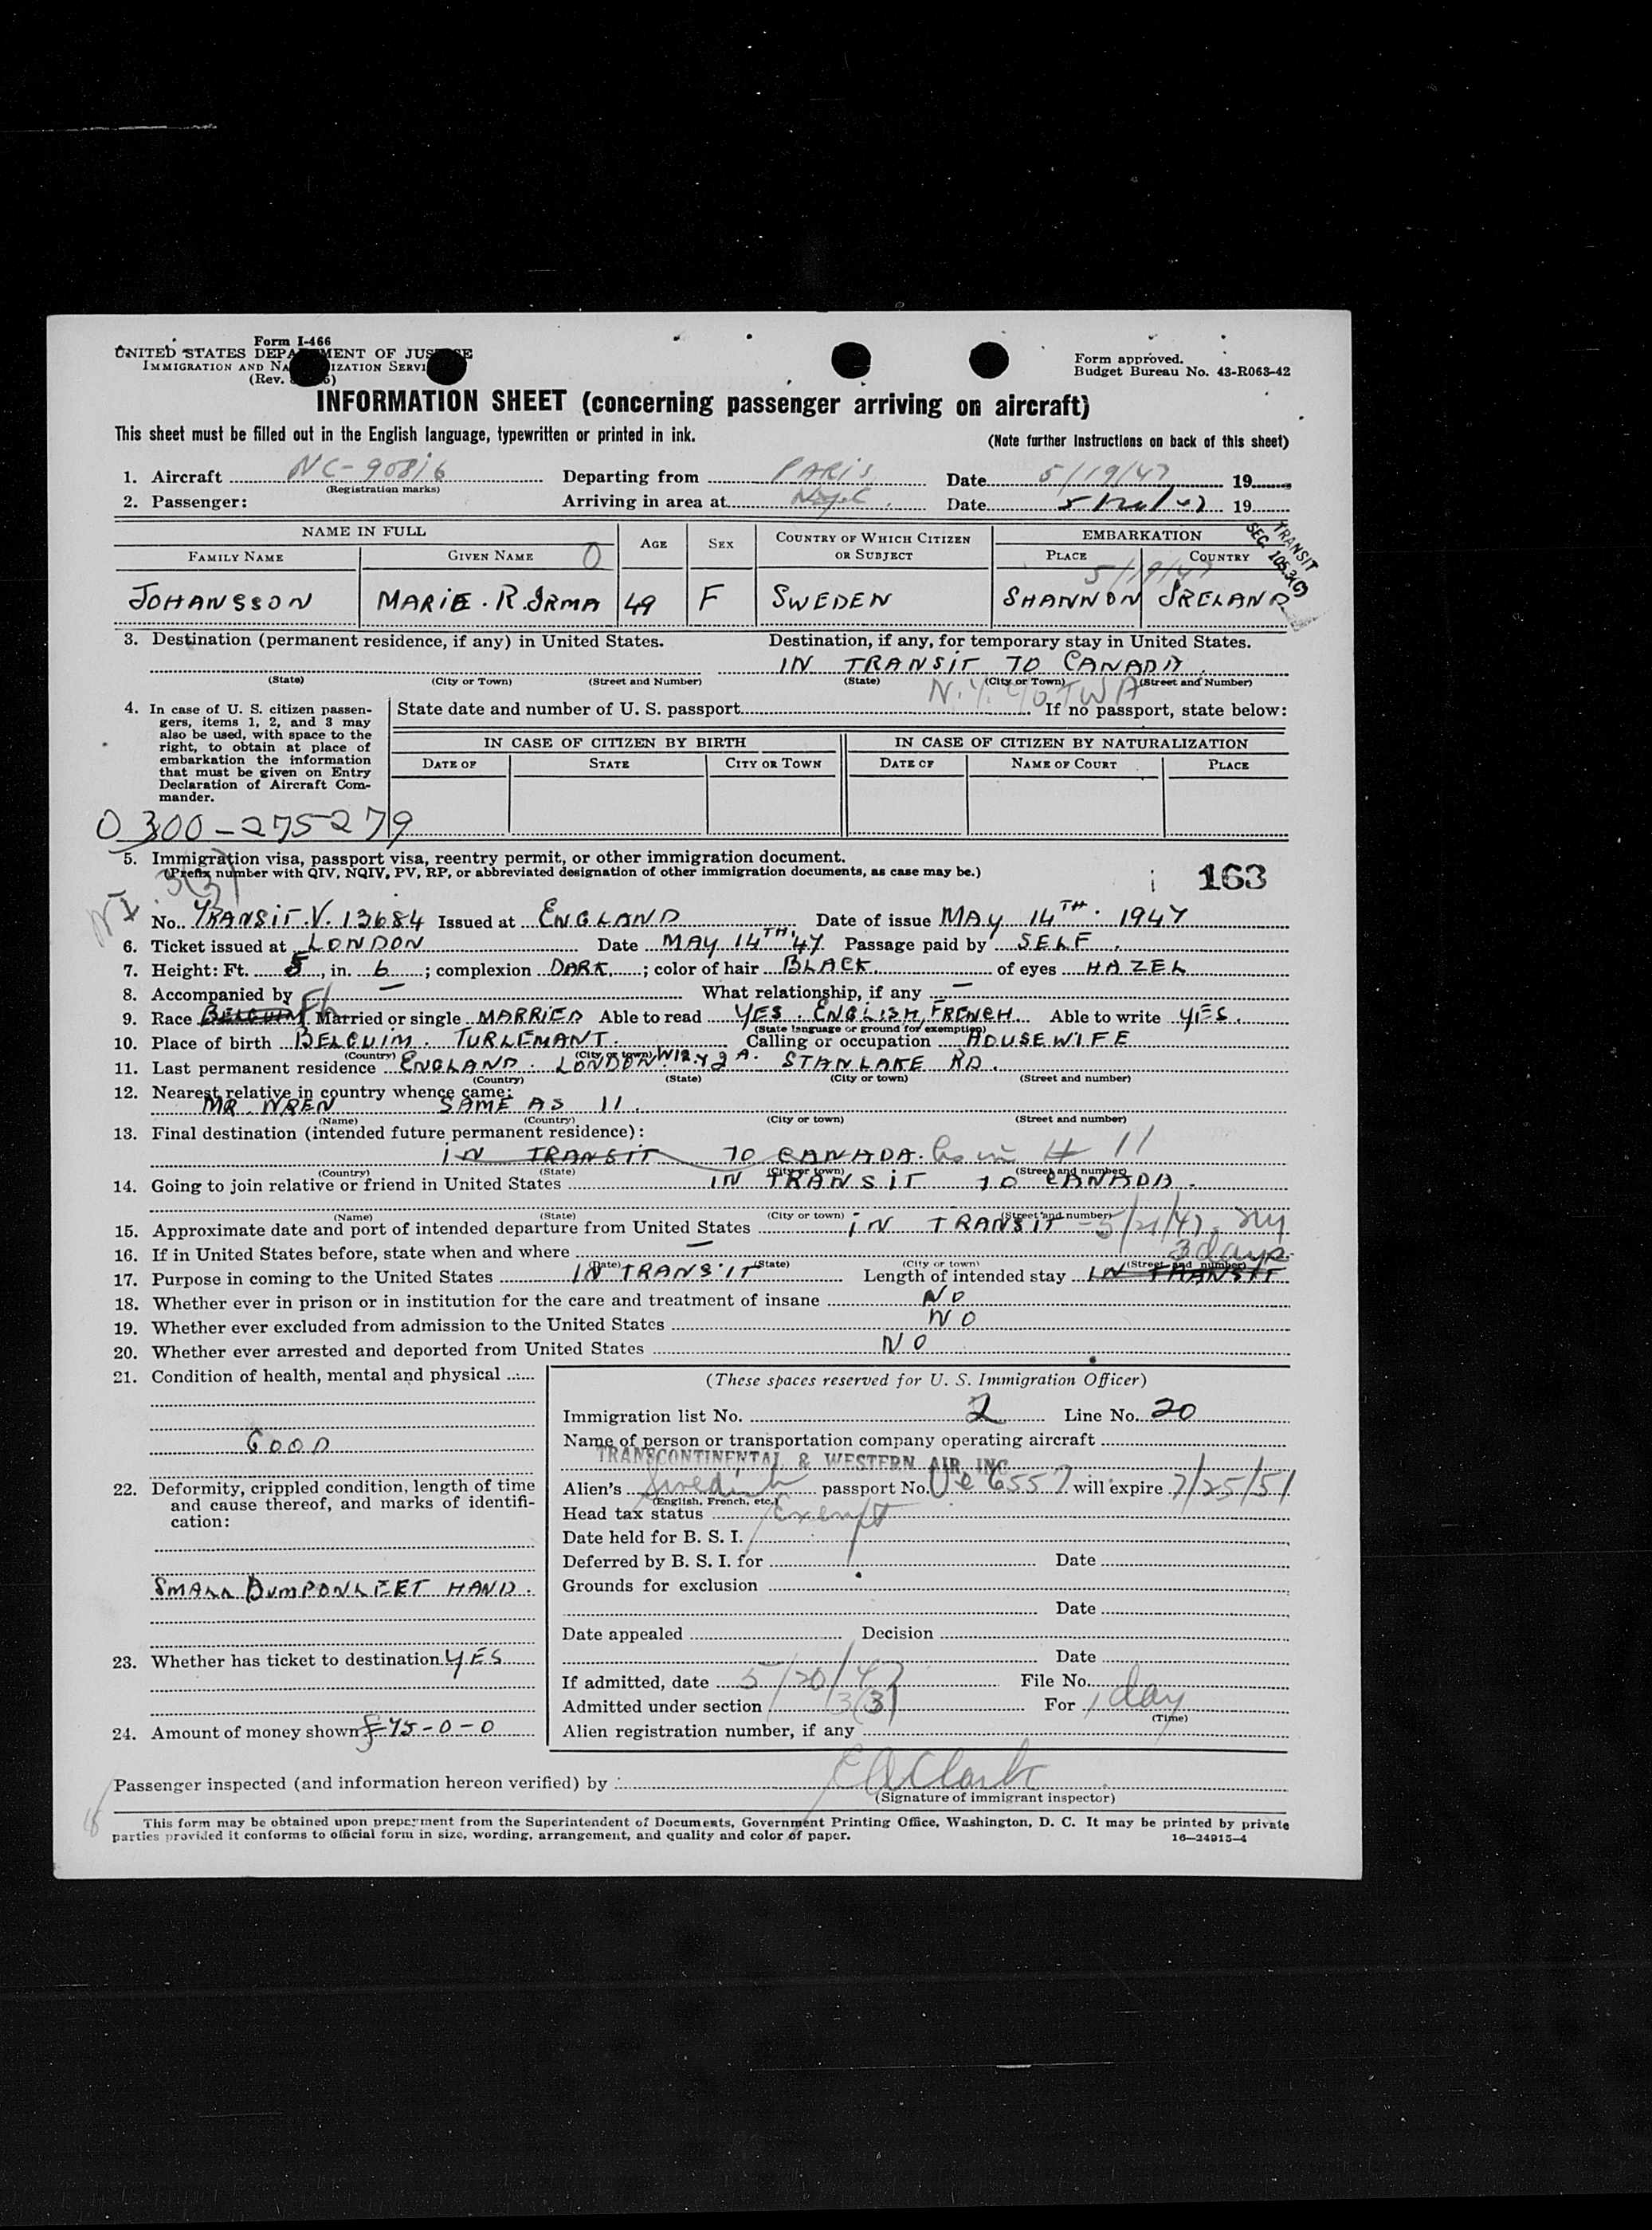 Form I-466
UNITED STATES DEPARTMENT OF JUSTICE
IMMIGRATION AND NATURALIZATION SERVICE
(Rev.
Form approved.
Budget Bureau No. 43-R063-42
INFORMATION SHEET (concerning passenger arriving on aircraft)
This sheet must be filled out in the English language, typewritten or printed in ink.
(Note further instructions on back of this sheet)
1. Aircraft NC-90816 Departing from PARIS Date 5/19/47 19
(Registration marks)
2. Passenger: Arriving in area at Date 19
NAME IN FULL AGE SEX COUNTRY OF WHICH CITIZEN OR SUBJECT EMBARKATION
FAMILY NAME GIVEN NAME O PLACE COUNTRY
TRANSIT
SEC. 105.3(C)
5/19/47
JOHANSSON MARIE. R. IRMA 49 F SWEDEN SHANNON IRELAND
3. Destination (permanent residence, if any) in United States. Destination, if any, for temporary stay in United States.
IN TRANSIT TO CANADA.
(State) (City or Town) (Street and Number) (State) (City or Town) (Street and Number)
N.Y. c/o TWA
4. In case of U. S. citizen passengers, items 1, 2, and 3 may also be used, with space to the right, to obtain at place of embarkation the information that must be given on Entry Declaration of Aircraft Commander.
State date and number of U. S. passport If no passport, state below:
IN CASE OF CITIZEN BY BIRTH IN CASE OF CITIZEN BY NATURALIZATION
DATE OF STATE CITY OR TOWN DATE OF NAME OF COURT PLACE
0300-275279
5. Immigration visa, passport visa, reentry permit, or other immigration document.
(Prefix number with QIV, NQIV, PV, RP, or abbreviated designation of other immigration documents, as case may be.)
163
NI 3(3)
No. TRANSIT.V. 13684 Issued at ENGLAND Date of issue MAY 14TH. 1947
6. Ticket issued at LONDON Date MAY 14TH. 47 Passage paid by SELF.
7. Height: Ft. 5, in. 6; complexion DARK.; color of hair BLACK. of eyes HAZEL
8. Accompanied by — What relationship, if any —
9. Race BELGUIM Married or single MARRIED Able to read YES. ENGLISH, FRENCH. Able to write YES.
(State language or ground for exemption)
10. Place of birth BELGUIM. TURLEMANT. Calling or occupation HOUSEWIFE
(Country) (City or town)
11. Last permanent residence ENGLAND. LONDON. W12. 42 A. STANLAKE RD.
(Country) (State) (City or town) (Street and number)
12. Nearest relative in country whence came:
MR. WREN SAME AS 11.
(Name) (Country) (City or town) (Street and number)
13. Final destination (intended future permanent residence):
IN TRANSIT TO CANADA. as in # 11
(Country) (State) (City or town) (Street and number)
14. Going to join relative or friend in United States IN TRANSIT TO CANADA.
(Name) (State) (City or town) (Street and number)
15. Approximate date and port of intended departure from United States IN TRANSIT - 5/21/47. NY
16. If in United States before, state when and where —
(Date) (State) (City or town) (Street and number)
3 days
17. Purpose in coming to the United States IN TRANSIT Length of intended stay IN TRANSIT
18. Whether ever in prison or in institution for the care and treatment of insane NO
19. Whether ever excluded from admission to the United States NO
20. Whether ever arrested and deported from United States NO
21. Condition of health, mental and physical
GOOD
22. Deformity, crippled condition, length of time and cause thereof, and marks of identification:
SMALL BUMPONLEET HAND.
23. Whether has ticket to destination YES
24. Amount of money shown £75-0-0
(These spaces reserved for U. S. Immigration Officer)
Immigration list No. 2 Line No. 20
Name of person or transportation company operating aircraft
TRANSCONTINENTAL & WESTERN AIR, INC
Alien's Swedish passport No. 6557 will expire 7/25/51
(English, French, etc.)
Head tax status Exempt
Date held for B. S. I.
Deferred by B. S. I. for Date
Grounds for exclusion
Date
Date appealed Decision
Date
If admitted, date 5/20/47 File No.
Admitted under section 3(3) For 1 day
(Time)
Alien registration number, if any
Passenger inspected (and information hereon verified) by E A Clark
(Signature of immigrant inspector)
This form may be obtained upon prepayment from the Superintendent of Documents, Government Printing Office, Washington, D. C. It may be printed by private
parties provided it conforms to official form in size, wording, arrangement, and quality and color of paper. 16—24915-4